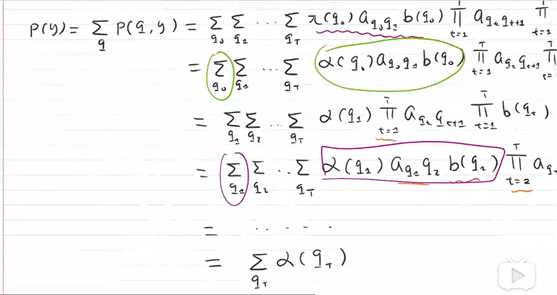 p(y) = Σ_q p(q, y) = Σ_{q_0} Σ_{q_1} ⋯ Σ_{q_T} π(q_0) a_{q_0 q_1} b(q_0) ∏_{t=1} a_{q_t q_{t+1}} ∏_{t=1}
= Σ_{q_0} Σ_{q_1} ⋯ Σ_{q_T} α(q_0) a_{q_0 q_1} b(q_0) ∏_{t=1}^{T} a_{q_t q_{t+1}}
= Σ_{q_1} Σ_{q_2} ⋯ Σ_{q_T} α(q_1) ∏_{t=1}^{T} a_{q_t q_{t+1}} ∏_{t=1}^{T} b(q_t)
= Σ_{q_1} Σ_{q_2} ⋯ Σ_{q_T} α(q_1) a_{q_1 q_2} b(q_1) ∏_{t=2}^{T} a_q
= ⋯⋯
= Σ_{q_T} α(q_T)